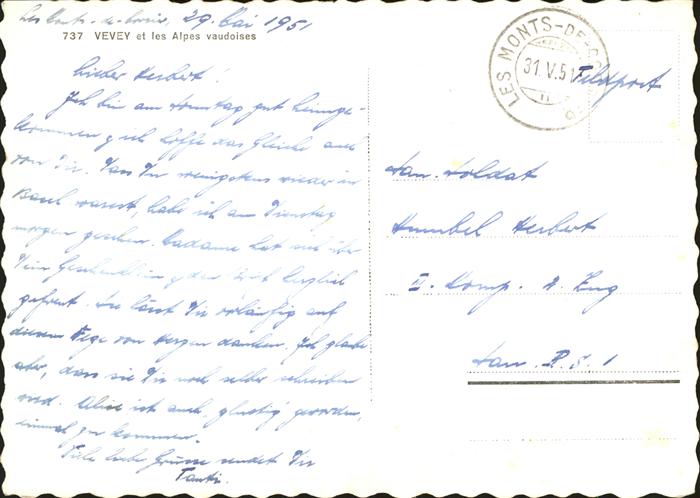 Les Monts-de-Corsier, 29. Mai 1951
737 VEVEY et les Alpes vaudoises
LES MONTS-DE-CO
31.V.51
Feldpost
Lieber Herbert!
Ich bin am Sonntag gut heimge-
kommen & ich hoffe das Gleiche auch
von Dir. Dass Du wenigstens wieder in
Basel warest, habe ich am Dienstag
morgen gesehen. Madame hat sich über
Dein Geschenklein & den Brief herzlich
gefreut. Sie lässt Dir vorläufig auf
diesem Wege von Herzen danken. Ich glaube
aber, dass sie Dir noch selber schreiben
wird. Alice ist auch "glustig" geworden,
einmal zu kommen.
Viele liebe Grüsse sendet Dir
Tanti.
San. Soldat
Humbel Herbert
II. Komp. 2. Zug
San. R.S. 1